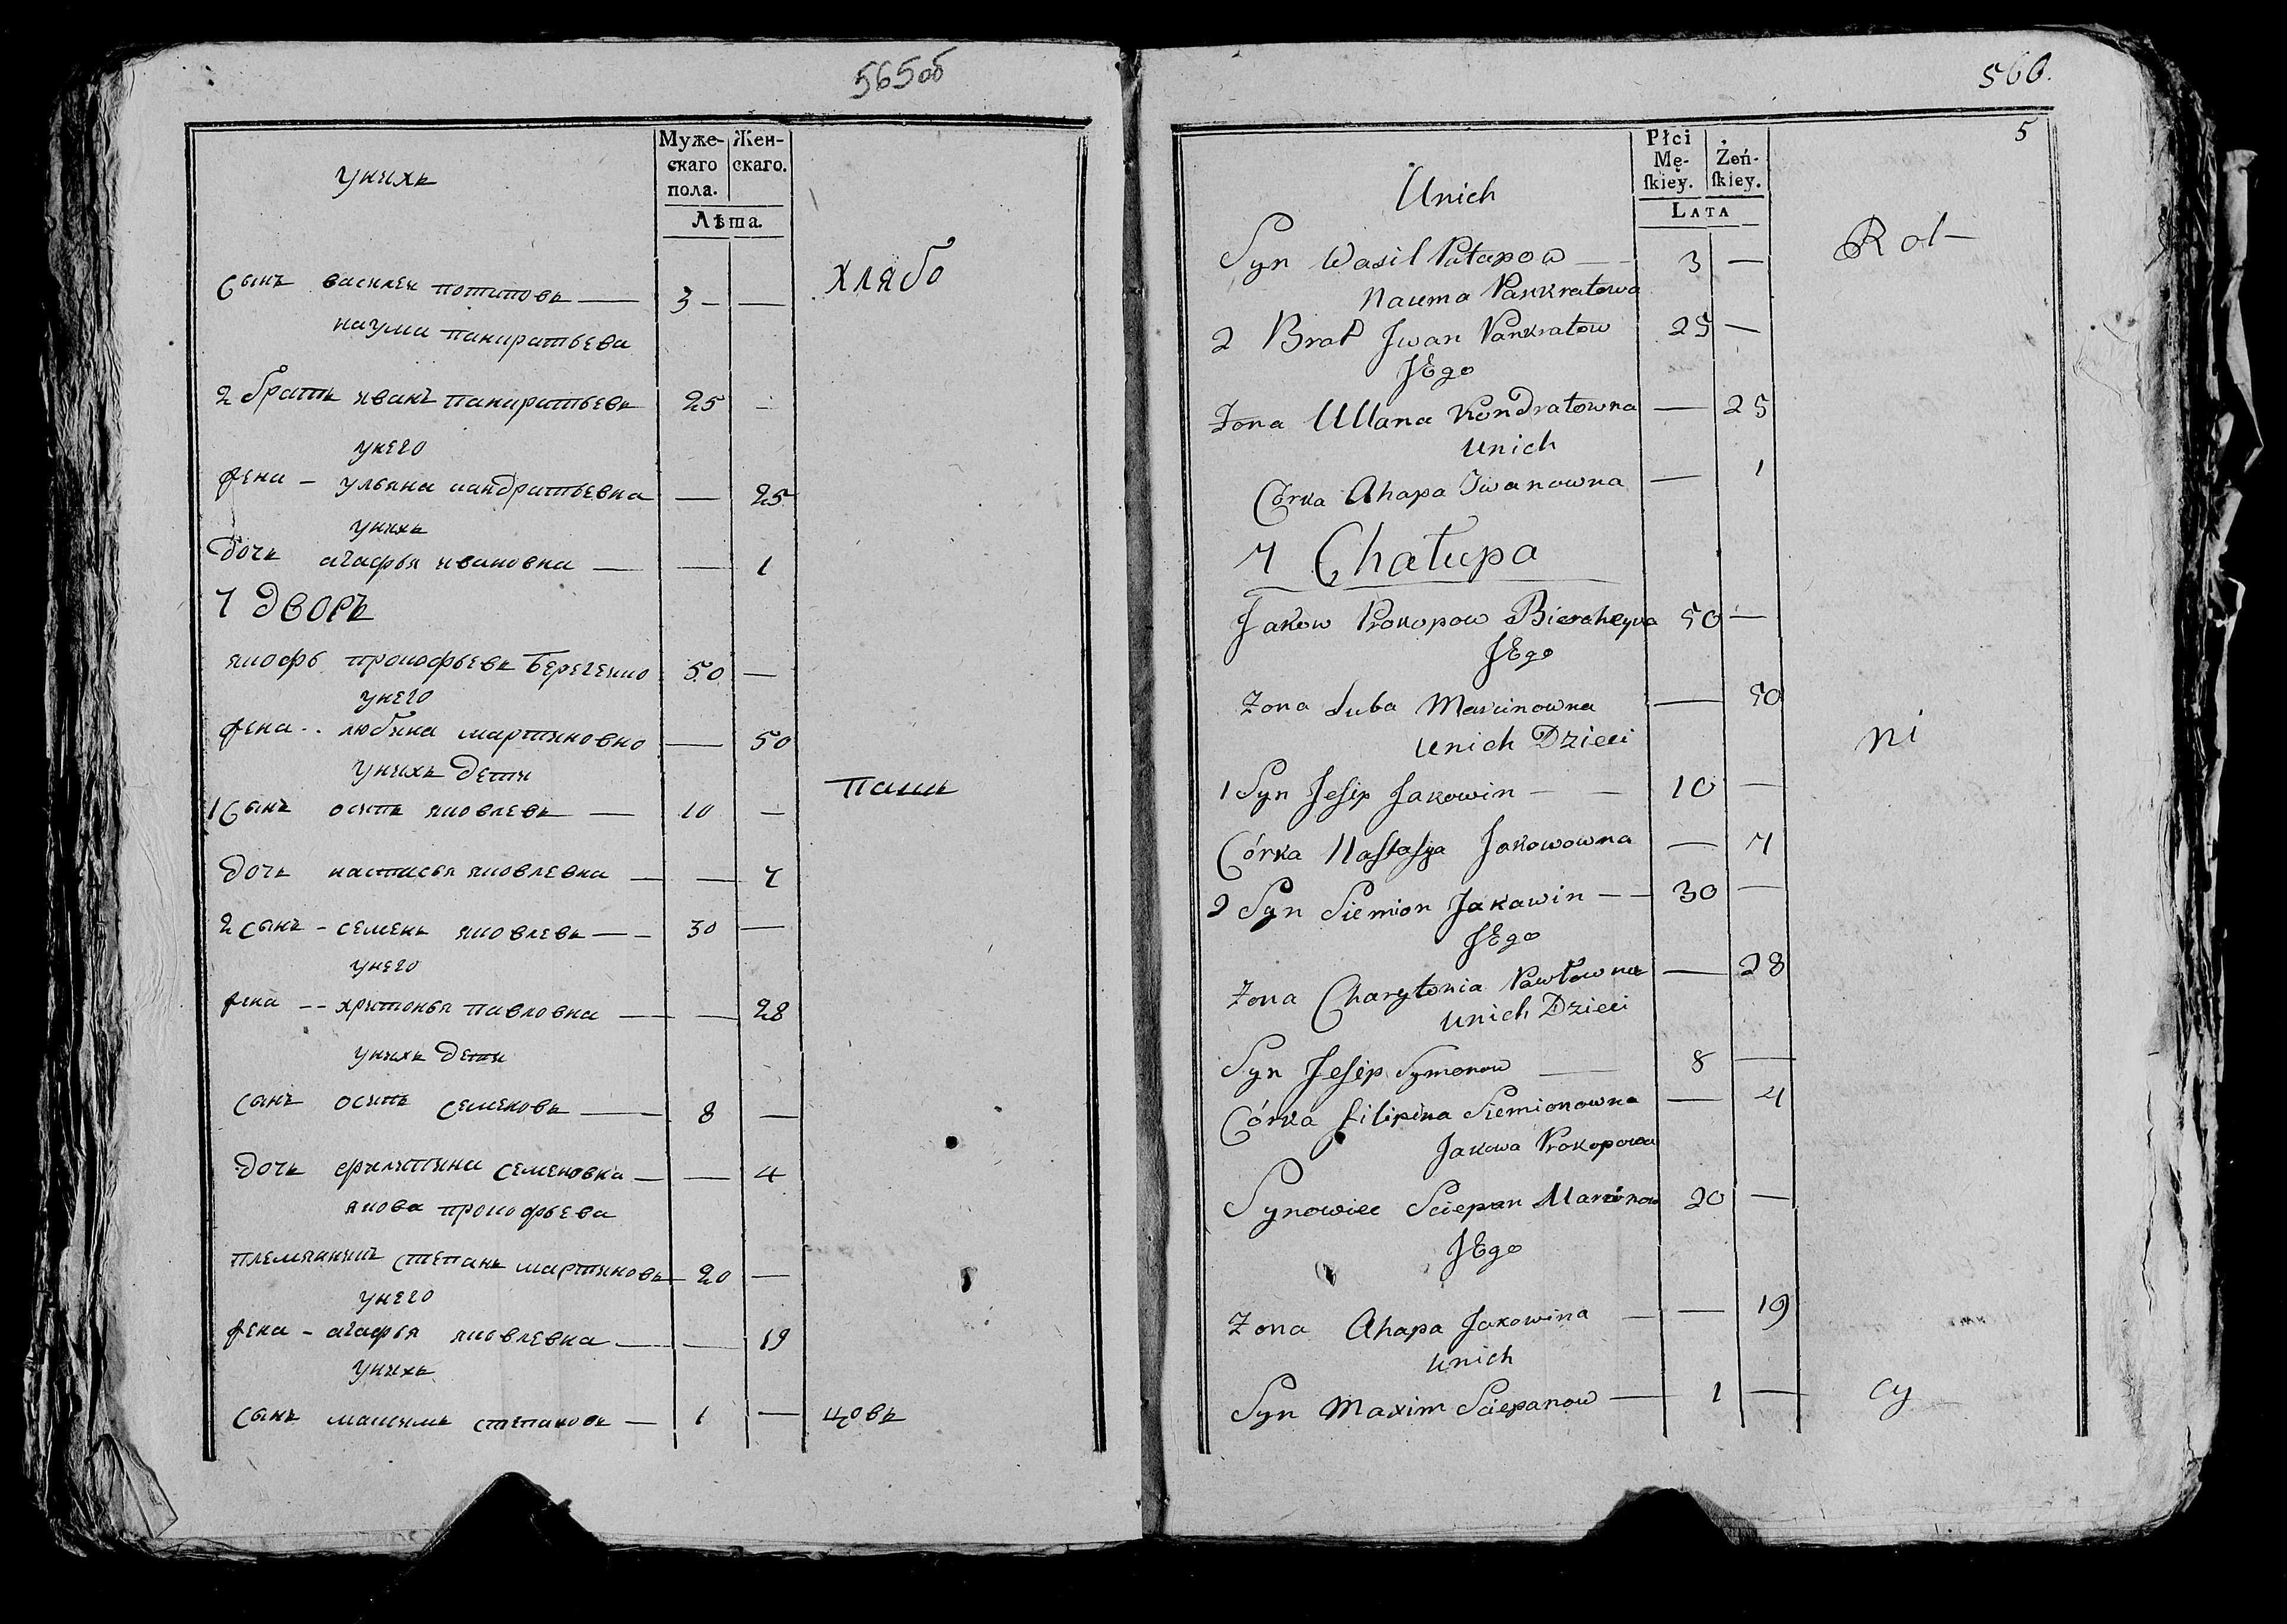 565об
унихъ
Муже-
скаго
пола.
Жен-
скаго.
Лѣта.
сынъ василеи потаповъ — 3 — —
хлябо
наума панкратьева
2 братъ иванъ панкратьевъ 25 —
унего
жена – ульяна кандратьевна — 25
унихъ
дочь агафья ивановна — — 1
7 дворъ
якофъ прокофьевъ 50 —
унего
жена мартиновно — 50
унихъ дети
1 сынъ осипъ яковлевъ — 10 —
паш
дочь настасья яковлевна — — 7
2 сынъ – семенъ яковлевъ — 30 —
унего
жена – – хритонья павловна — — 28
унихъ дети
сынъ осипъ семеновъ — 8 —
дочь филипина семеновна — — 4
якова прокофьева
племянникъ степанъ мартиновъ 20 —
унего
жена – агафья яковлевна — — 19
унихъ
сынъ максимъ степановъ — 1 —
цовъ
566.
5
Płci
Mę-
ſkiey.
Żeń-
ſkiey.
Lata
Unich
Syn Wasil Patapow — 3 —
Rol–
Nauma Pankratowa
2 Brat Jwan Pankratow 25 —
JEgo
Zona Ullana Kondratowna — 25
Unich
Córka Ahapa Iwanowna — 1
7 Chałupa
Jakow Prokopow 50 —
JEgo
Zona Luba Marcinowna — 50
Unich Dzieci
ni
1 Syn Jesip Jakowin — — 10 —
Córka Nastasya Jakowowna — 7
2 Syn Siemion Jakawin — — 30 —
JEgo
Zona Charytonia Pawłowna — 28
Unich Dzieci
Syn Jesip Symonow — 8 —
Córka filipina Siemionowna — 4
Jakowa Prokopowa
Synowiec Sciepan Marcinow 20 —
JEgo
Zona Ahapa Jakowina — — 19
Unich
Syn Maxim Sciepanow — 1 —
cy